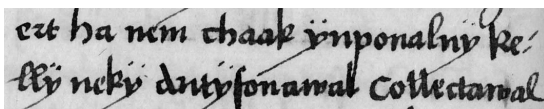 ezt ha nem chaak ÿnponalnÿ ke⸗
llÿ nekÿ antÿfonawal Collectawal